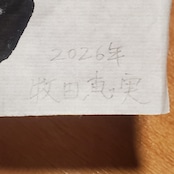 2026年
牧田真実